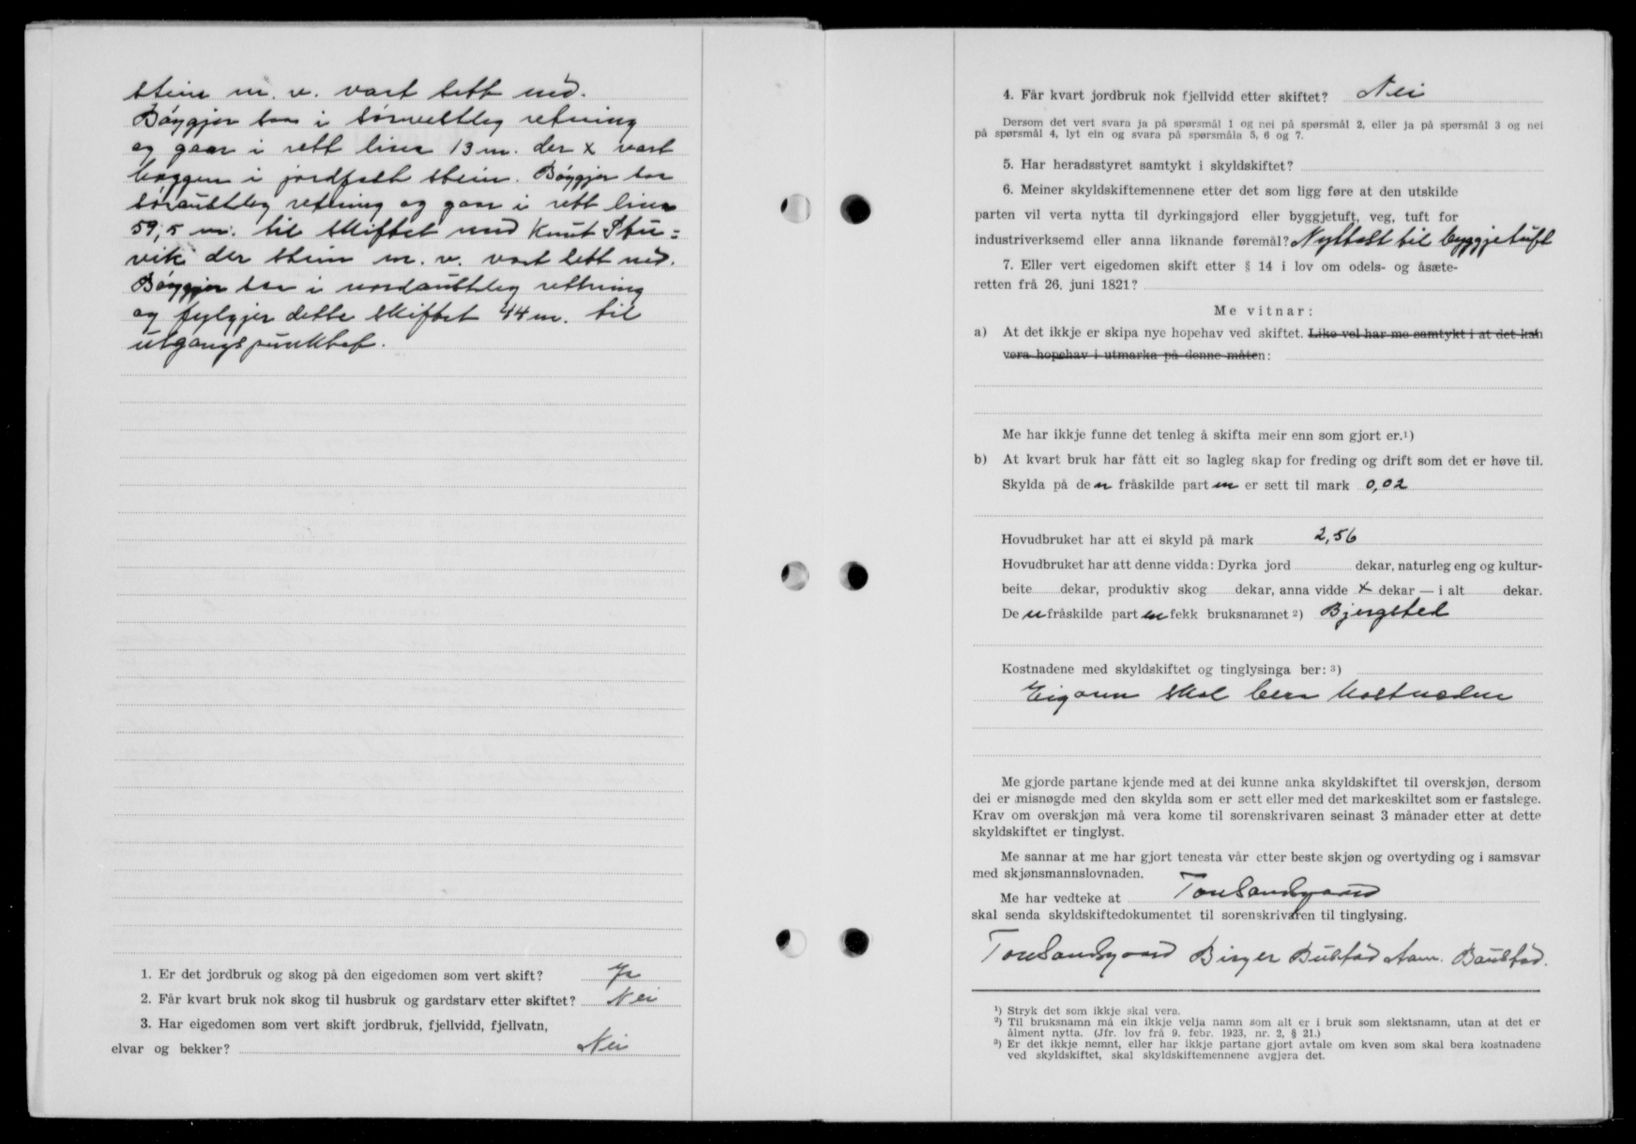 stein m. v. vart sett ned.
Bøygjer saa i sørvestleg retning
og gaar i rett line 13 m. der x vart
hoggen i jordfast stein. Bøygjer saa
søraustleg retning og gaar i rett line
59,5 m. til skiftet med Knut Stu=
vik der stein m. v. vart sett ned.
Bøygjer saa i nordaustleg rettning
og fylgjer dette skiftet 44 m. til
utgangspunktet.
1. Er det jordbruk og skog på den eigedomen som vert skift? Ja
2. Får kvart bruk nok skog til husbruk og gardstarv etter skiftet? Nei
3. Har eigedomen som vert skift jordbruk, fjellvidd, fjellvatn,
elvar og bekker? Nei
4. Får kvart jordbruk nok fjellvidd etter skiftet? Nei
Dersom det vert svara ja på spørsmål 1 og nei på spørsmål 2, eller ja på spørsmål 3 og nei
på spørsmål 4, lyt ein og svara på spørsmåla 5, 6 og 7.
5. Har heradsstyret samtykt i skyldskiftet?
6. Meiner skyldskiftemennene etter det som ligg føre at den utskilde
parten vil verta nytta til dyrkingsjord eller byggjetuft, veg, tuft for
industriverksemd eller anna liknande føremål? Nyttast til byggjetuft
7. Eller vert eigedomen skift etter § 14 i lov om odels- og åsæte-
retten frå 26. juni 1821?
Me vitnar:
a) At det ikkje er skipa nye hopehav ved skiftet. Like vel har me samtykt i at det kan
vera hopehav i utmarka på denne måten:
Me har ikkje funne det tenleg å skifta meir enn som gjort er.¹)
b) At kvart bruk har fått eit so lagleg skap for freding og drift som det er høve til.
Skylda på den fråskilde parten er sett til mark 0,02
Hovudbruket har att ei skyld på mark 2,56
Hovudbruket har att denne vidda: Dyrka jord dekar, naturleg eng og kultur-
beite dekar, produktiv skog dekar, anna vidde x dekar — i alt dekar.
Den fråskilde parten fekk bruksnamnet ²) Bjergsted
Kostnadene med skyldskiftet og tinglysinga ber: ³)
Eigaren skal bera kostnaden
Me gjorde partane kjende med at dei kunne anka skyldskiftet til overskjøn, dersom
dei er misnøgde med den skylda som er sett eller med det markeskiltet som er fastslege.
Krav om overskjøn må vera kome til sorenskrivaren seinast 3 månader etter at dette
skyldskiftet er tinglyst.
Me sannar at me har gjort tenesta vår etter beste skjøn og overtyding og i samsvar
med skjønsmannslovnaden.
Me har vedteke at Tore Sandsgaard
skal senda skyldskiftedokumentet til sorenskrivaren til tinglysing.
Tore Sandsgaard Birger Bustad Aam. Baustad.
¹) Stryk det som ikkje skal vera.
²) Til bruksnamn må ein ikkje velja namn som alt er i bruk som slektsnamn, utan at det er
ålment nytta. (Jfr. lov frå 9. febr. 1923, nr. 2, § 21.)
³) Er det ikkje nemnt, eller har ikkje partane gjort avtale om kven som skal bera kostnadene
ved skyldskiftet, skal skyldskiftemennene avgjera det.